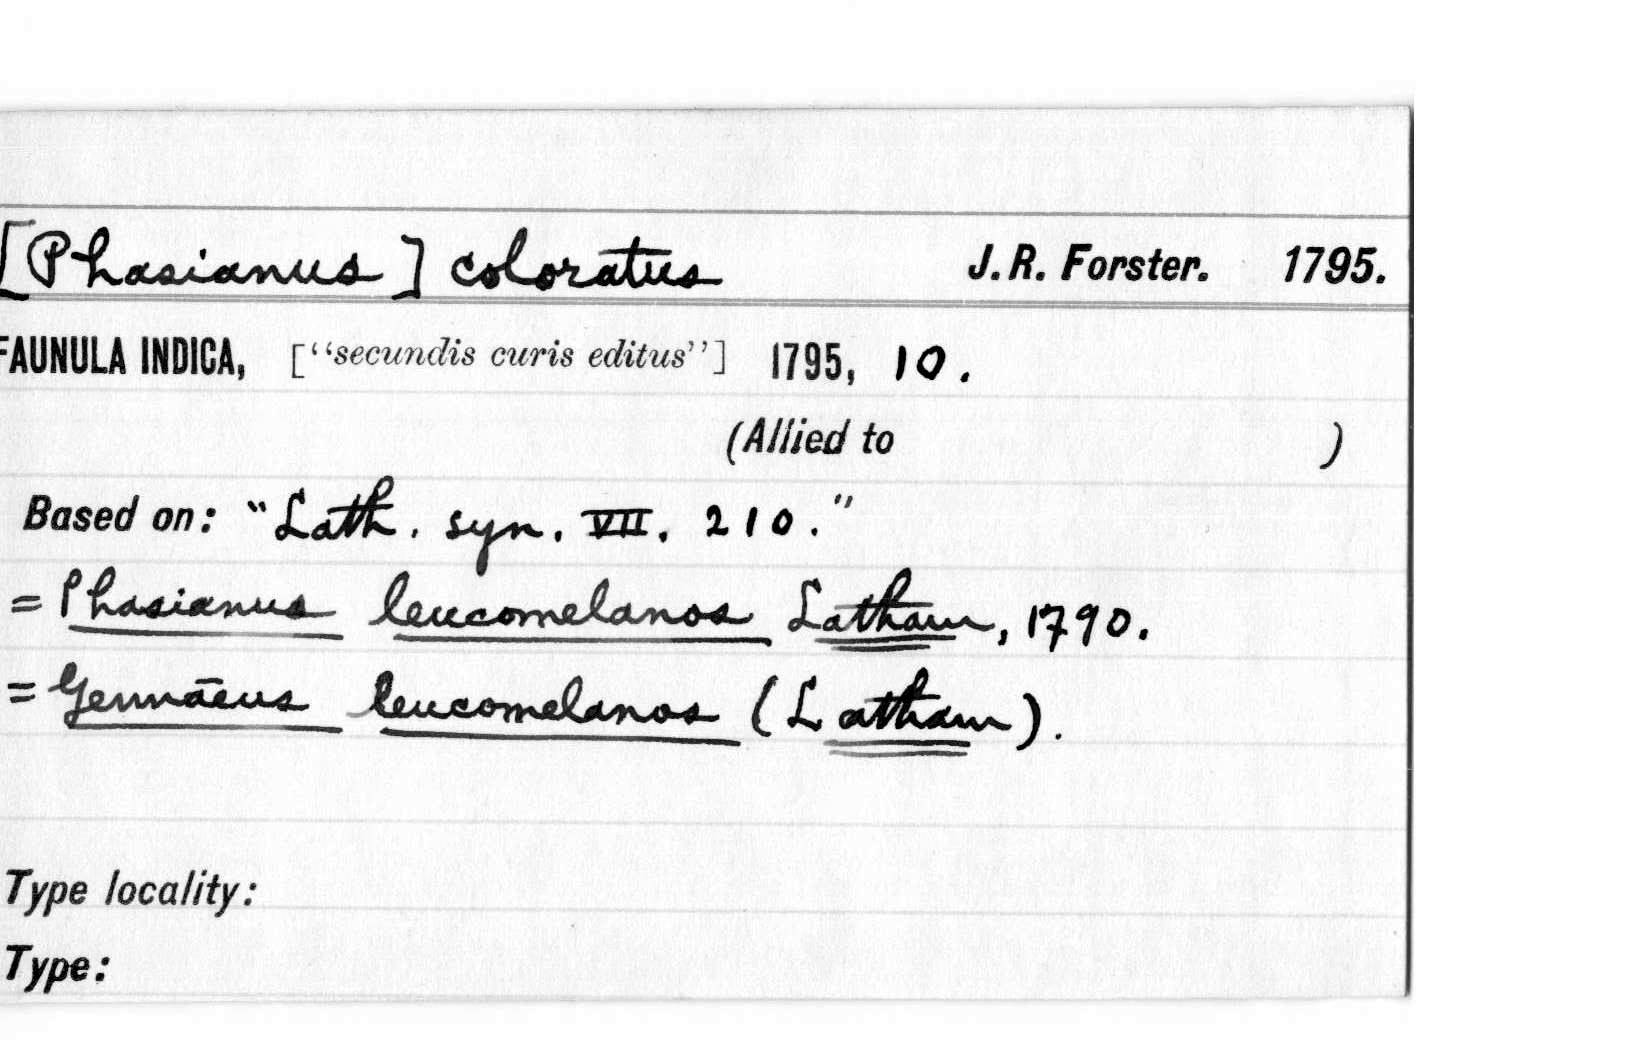 [Phasianus] coloratus J. R. Forster. 1795.
FAUNULA INDICA, [“secundis curis editus”] 1795, 10.
(Allied to )
Based on: “Lath. syn. VII. 210.”
= Phasianus leucomelanos Latham, 1790.
= Gennaeus leucomelanos (Latham).
Type locality:
Type: